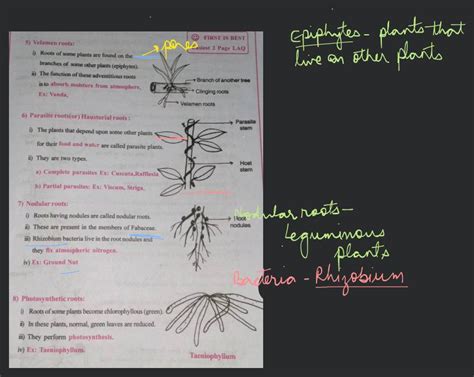 FIRST IS BEST
5) Velamen roots:
pores
2 Page LAQ
i) Roots of some plants are found on the
branches of some other plants (epiphytes).
ii) The function of these adventitious roots
is to absorb moisture from atmosphere.
Ex: Vanda.
Branch of another tree
Clinging roots
Velamen roots
6) Parasite roots(or) Haustorial roots :
i) The plants that depend upon some other plants
for their food and water are called parasite plants.
ii) They are two types.
a) Complete parasites Ex: Cuscuta,Rafflesia
b) Partial parasites: Ex: Viscum, Striga.
Parasite
stem
Host
stem
7) Nodular roots:
i) Roots having nodules are called nodular roots.
ii) These are present in the members of Fabaceae.
iii) Rhizobium bacteria live in the root nodules and
they fix atmospheric nitrogen.
iv) Ex: Ground Nut
Root
nodules
8) Photosynthetic roots:
i) Roots of some plants become chlorophyllous (green).
ii) In these plants, normal, green leaves are reduced.
iii) They perform photosynthesis.
iv) Ex: Taeniophyllum.
Taeniophyllum
Epiphytes - plants that
live on other plants
Nodular roots -
Leguminous
plants
Bacteria - Rhizobium